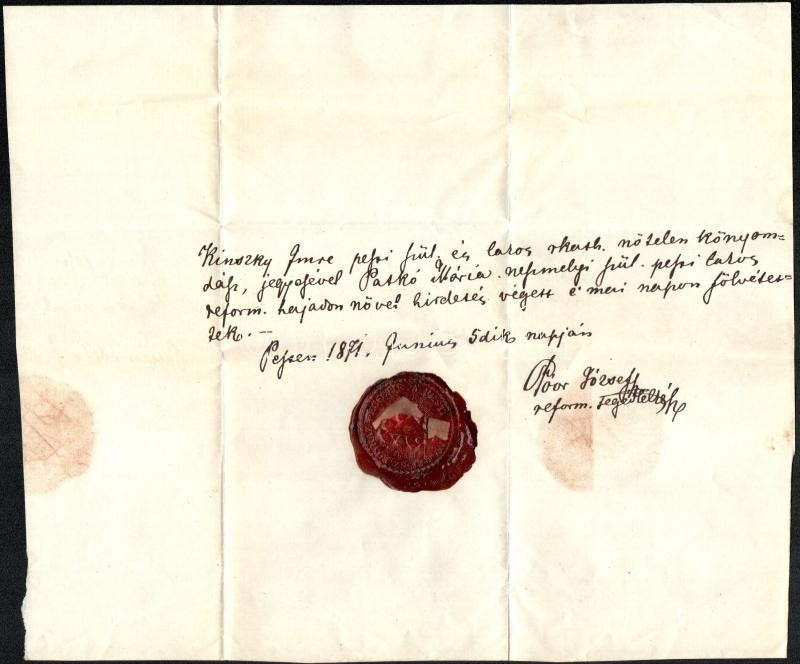 Kinszky Imre pesti szül. és lakos rkath. nőtelen könyom=
dász, jegyesével Patkó Mária neszmélyi szül. pesti lakos
reform. hajadon nővel hirdetés végett e mai napon fölvétet=
tek. —
Pesten 1871. Junius 5dik napján
Poór József
reform. segédlelkész